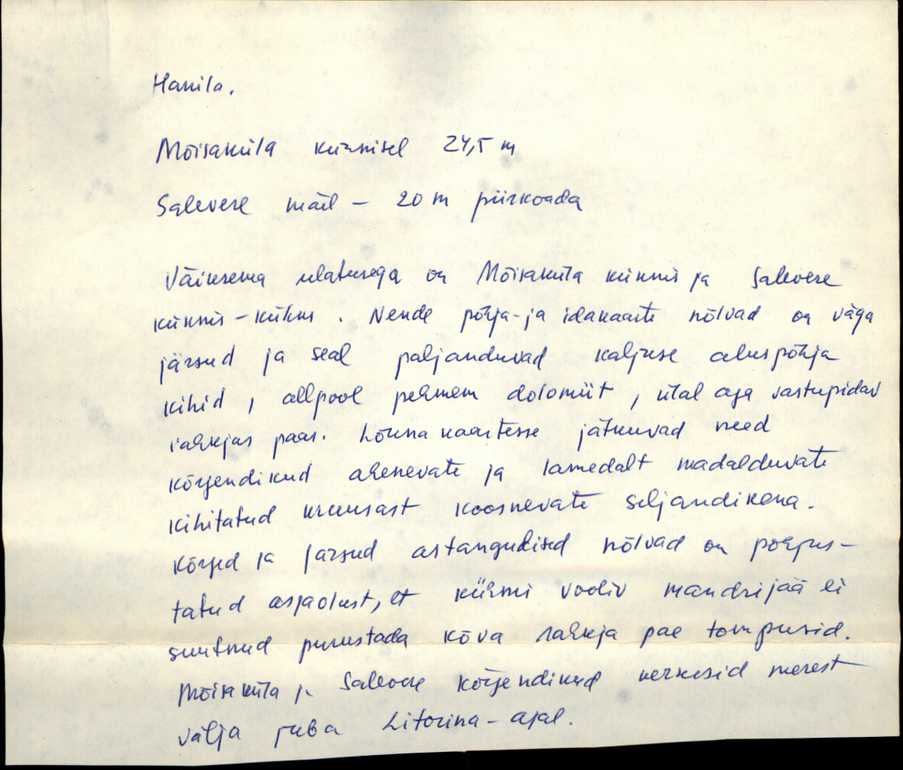 Hanila.
Mõisaküla künnisel 24,5 m
Salevere mäel – 20 m piirkoada
Väiksema ulatusega on Mõisaküla künnis ja Salevere
künnis-kühm. Nende põhja- ja idakaarte nõlvad on väga
järsud ja seal paljanduvad kaljuse aluspõhja
kihid, allpool pehmem dolomiit, ülal aga vastupidav
rahkjas paas. Lõuna kaartesse jätkuvad need
kõrgendikud ahenevate ja lamedalt madalduvate
kihitatud kruusast koosnevate seljandikena.
Kõrged ja järsud astangulised nõlvad on põhjus-
tatud asjaolust, et kühmi vooliv mandrijää ei
suutnud purustada kõva rahkja pae tompusid.
Mõisaküla ja Salevere kõrgendikud kerkisid merest
välja juba Litorina-ajal.